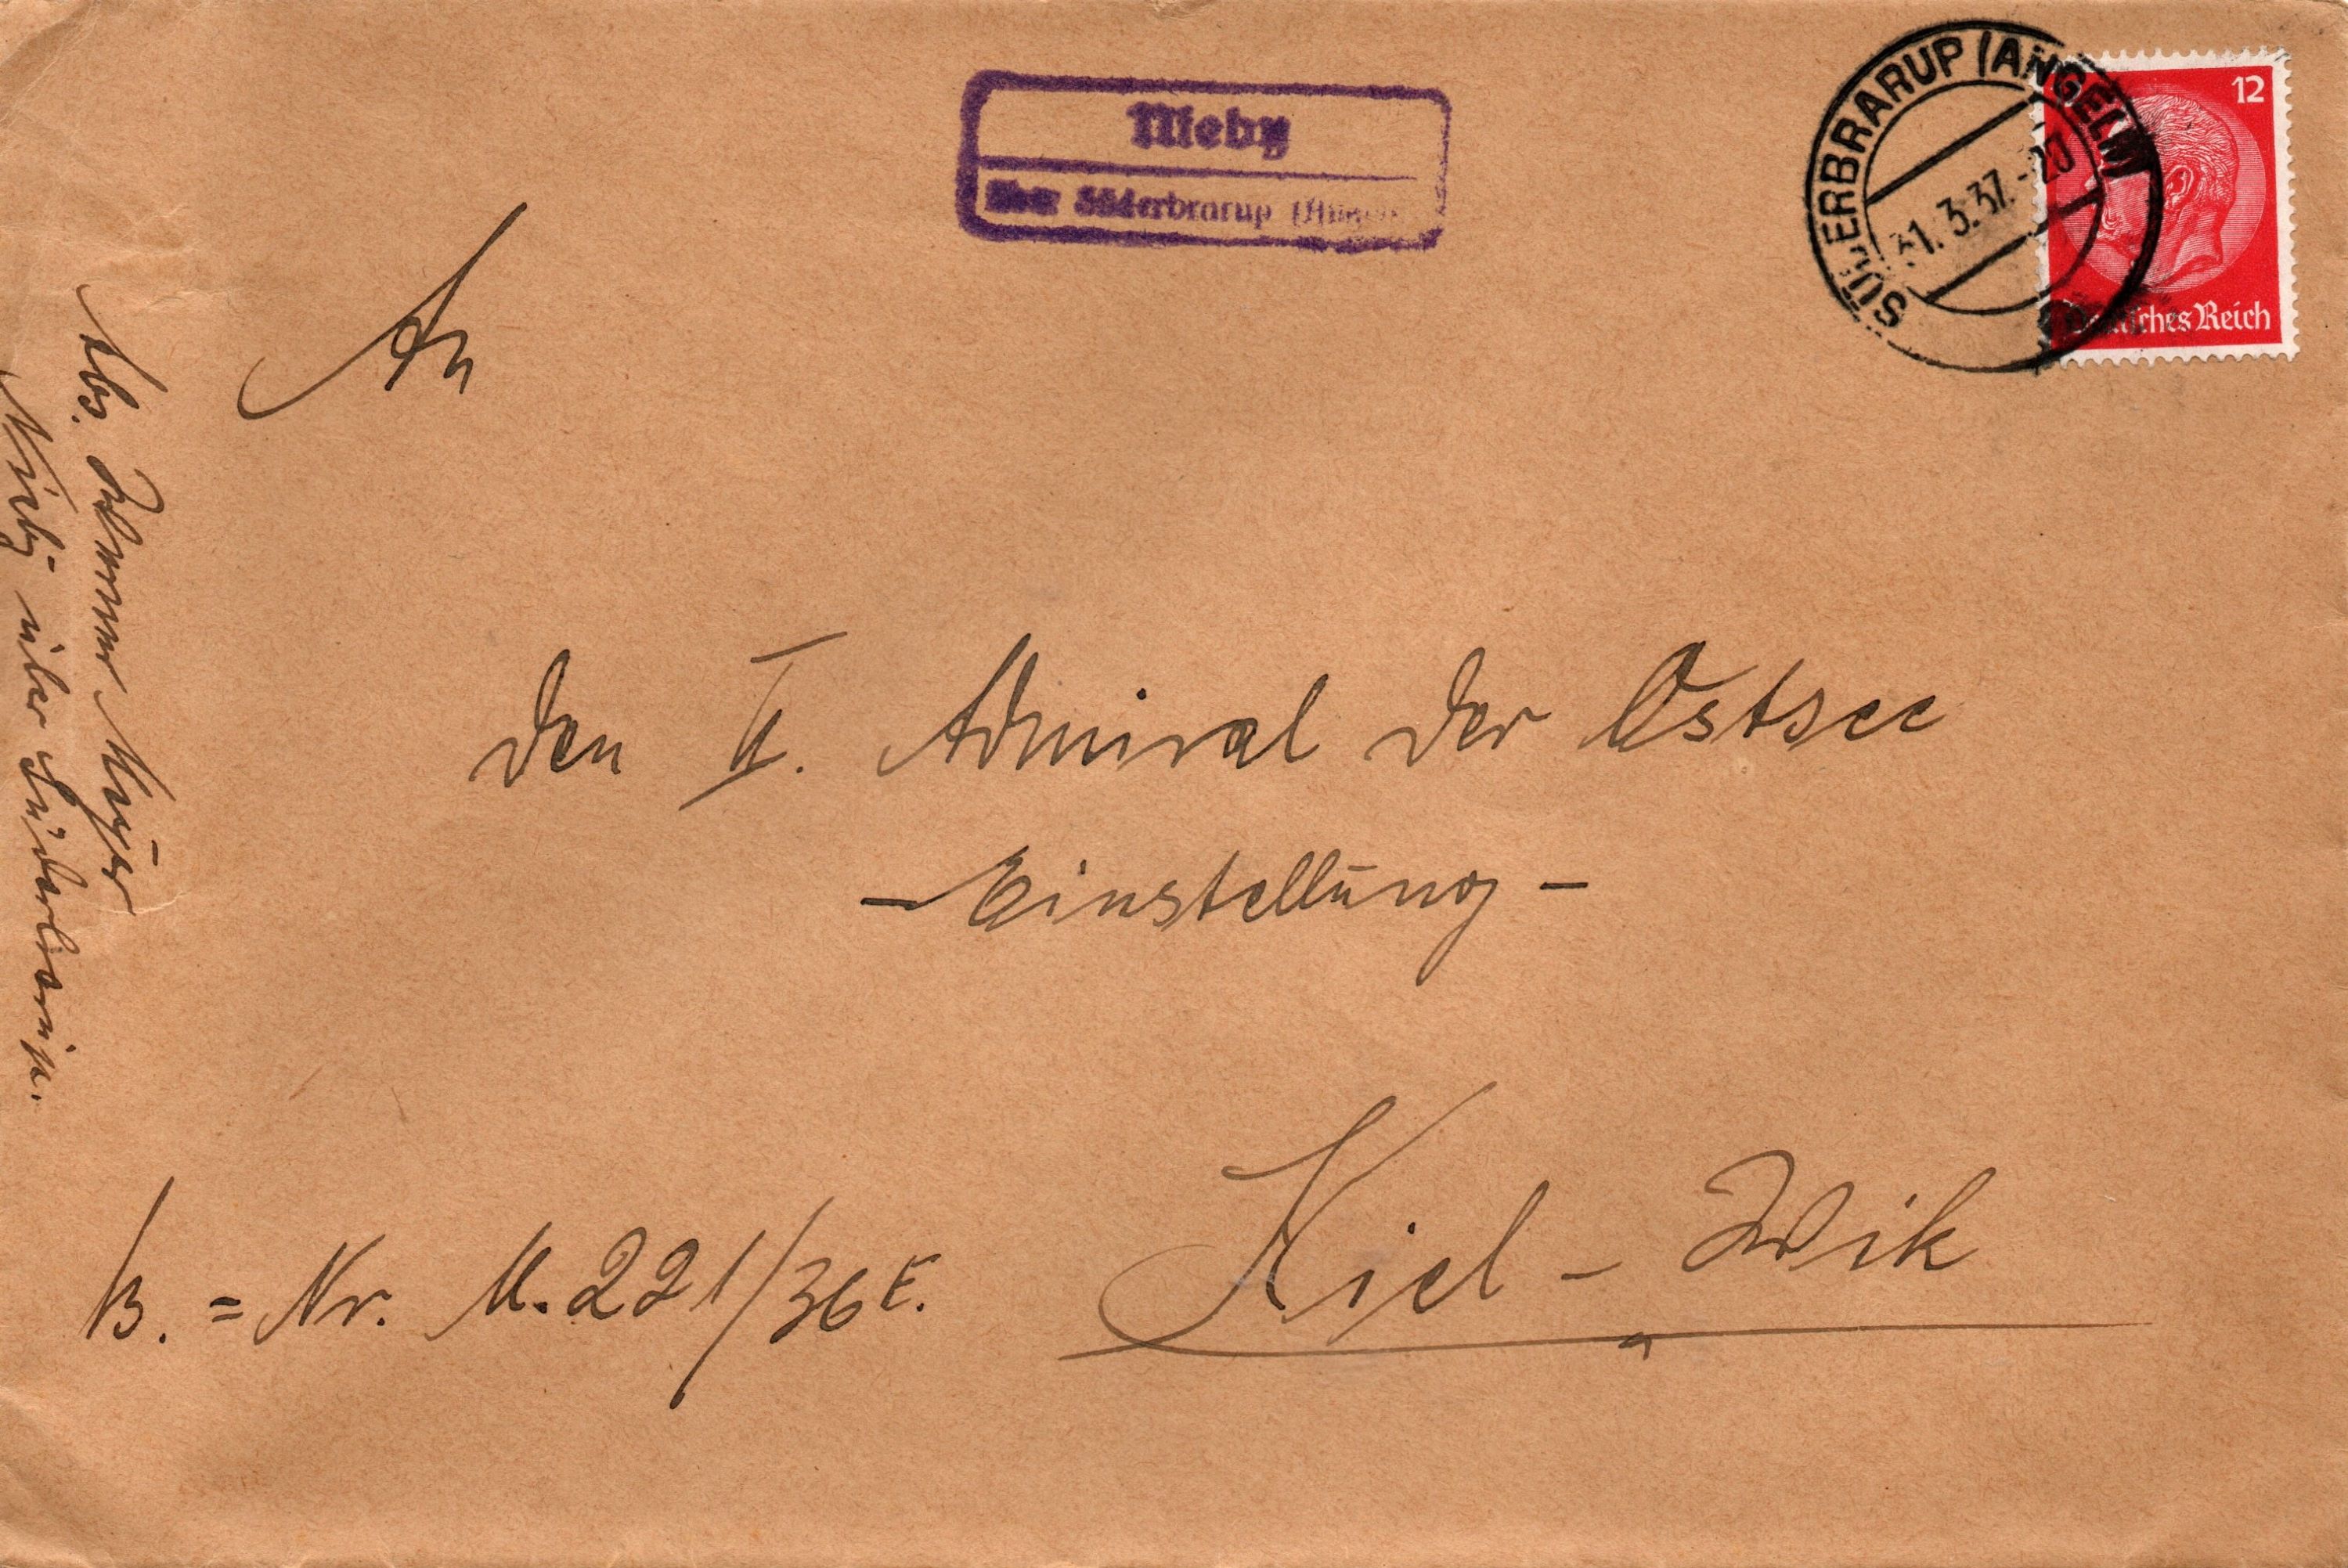 Nieby
über Süderbrarup (Angeln)
SÜDERBRARUP (ANGELN)
31. 3. 37. - 20
12
Deutsches Reich
An
den II. Admiral der Ostsee
- Einstellung -
Kiel - Wik
B. = Nr. M. 221/36 E.
Abs. Meyer
Nieby über Süderbrarup.